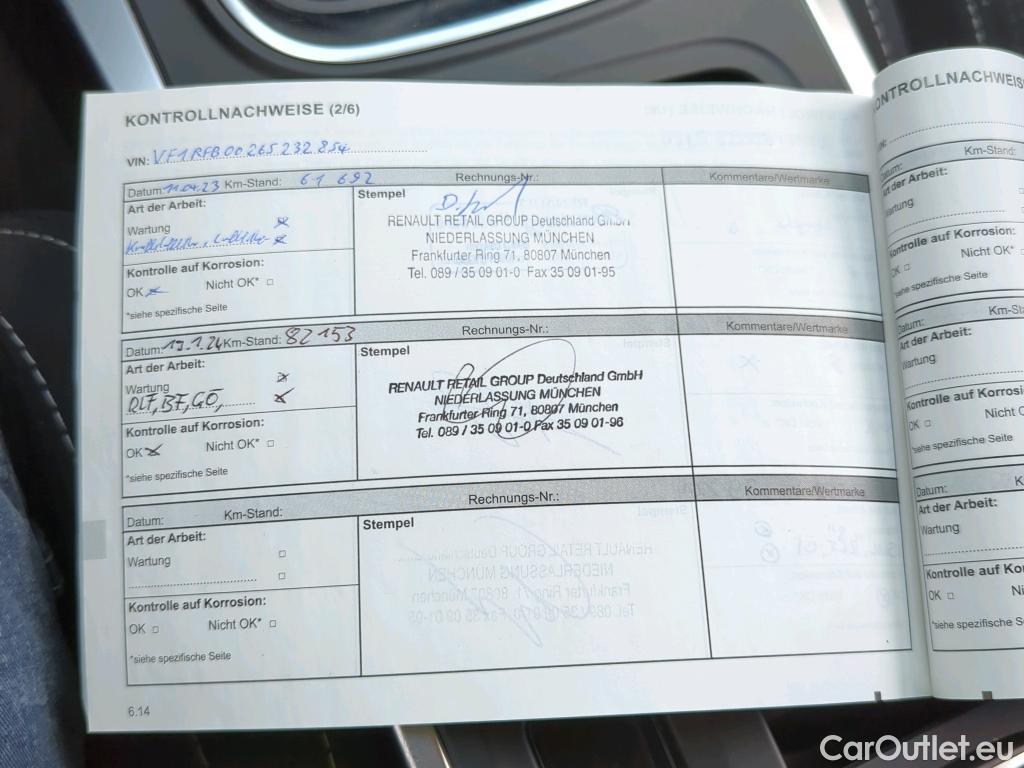 KONTROLLNACHWEISE (2/6)
VIN: VF1RFB00265232854
Datum: 11.04.23 Km-Stand: 61 692 Rechnungs-Nr.: Kommentare/Wertmarke
Art der Arbeit:
Wartung
Stempel
RENAULT RETAIL GROUP Deutschland GmbH
NIEDERLASSUNG MÜNCHEN
Frankfurter Ring 71, 80807 München
Tel. 089 / 35 09 01-0 Fax 35 09 01-95
Kontrolle auf Korrosion:
OK Nicht OK*
*siehe spezifische Seite
Datum: 19.1.24 Km-Stand: 82 153 Rechnungs-Nr.: Kommentare/Wertmarke
Art der Arbeit:
Wartung
Stempel
RENAULT RETAIL GROUP Deutschland GmbH
NIEDERLASSUNG MÜNCHEN
Frankfurter Ring 71, 80807 München
Tel. 089 / 35 09 01-0 Fax 35 09 01-96
Kontrolle auf Korrosion:
OK Nicht OK*
*siehe spezifische Seite
Datum: Km-Stand: Rechnungs-Nr.: Kommentare/Wertmarke
Art der Arbeit:
Wartung
Stempel
Kontrolle auf Korrosion:
OK Nicht OK*
*siehe spezifische Seite
6.14
KONTROLLNACHWEISE
Datum: Km-Stand:
Art der Arbeit:
Wartung
Kontrolle auf Korrosion:
OK Nicht OK*
*siehe spezifische Seite
Datum:
Art der Arbeit:
Wartung
Kontrolle auf Korrosion:
OK
*siehe spezifische
Datum:
Art der Arbeit:
Wartung
Kontrolle auf
OK
*siehe spezifische
CarOutlet.eu